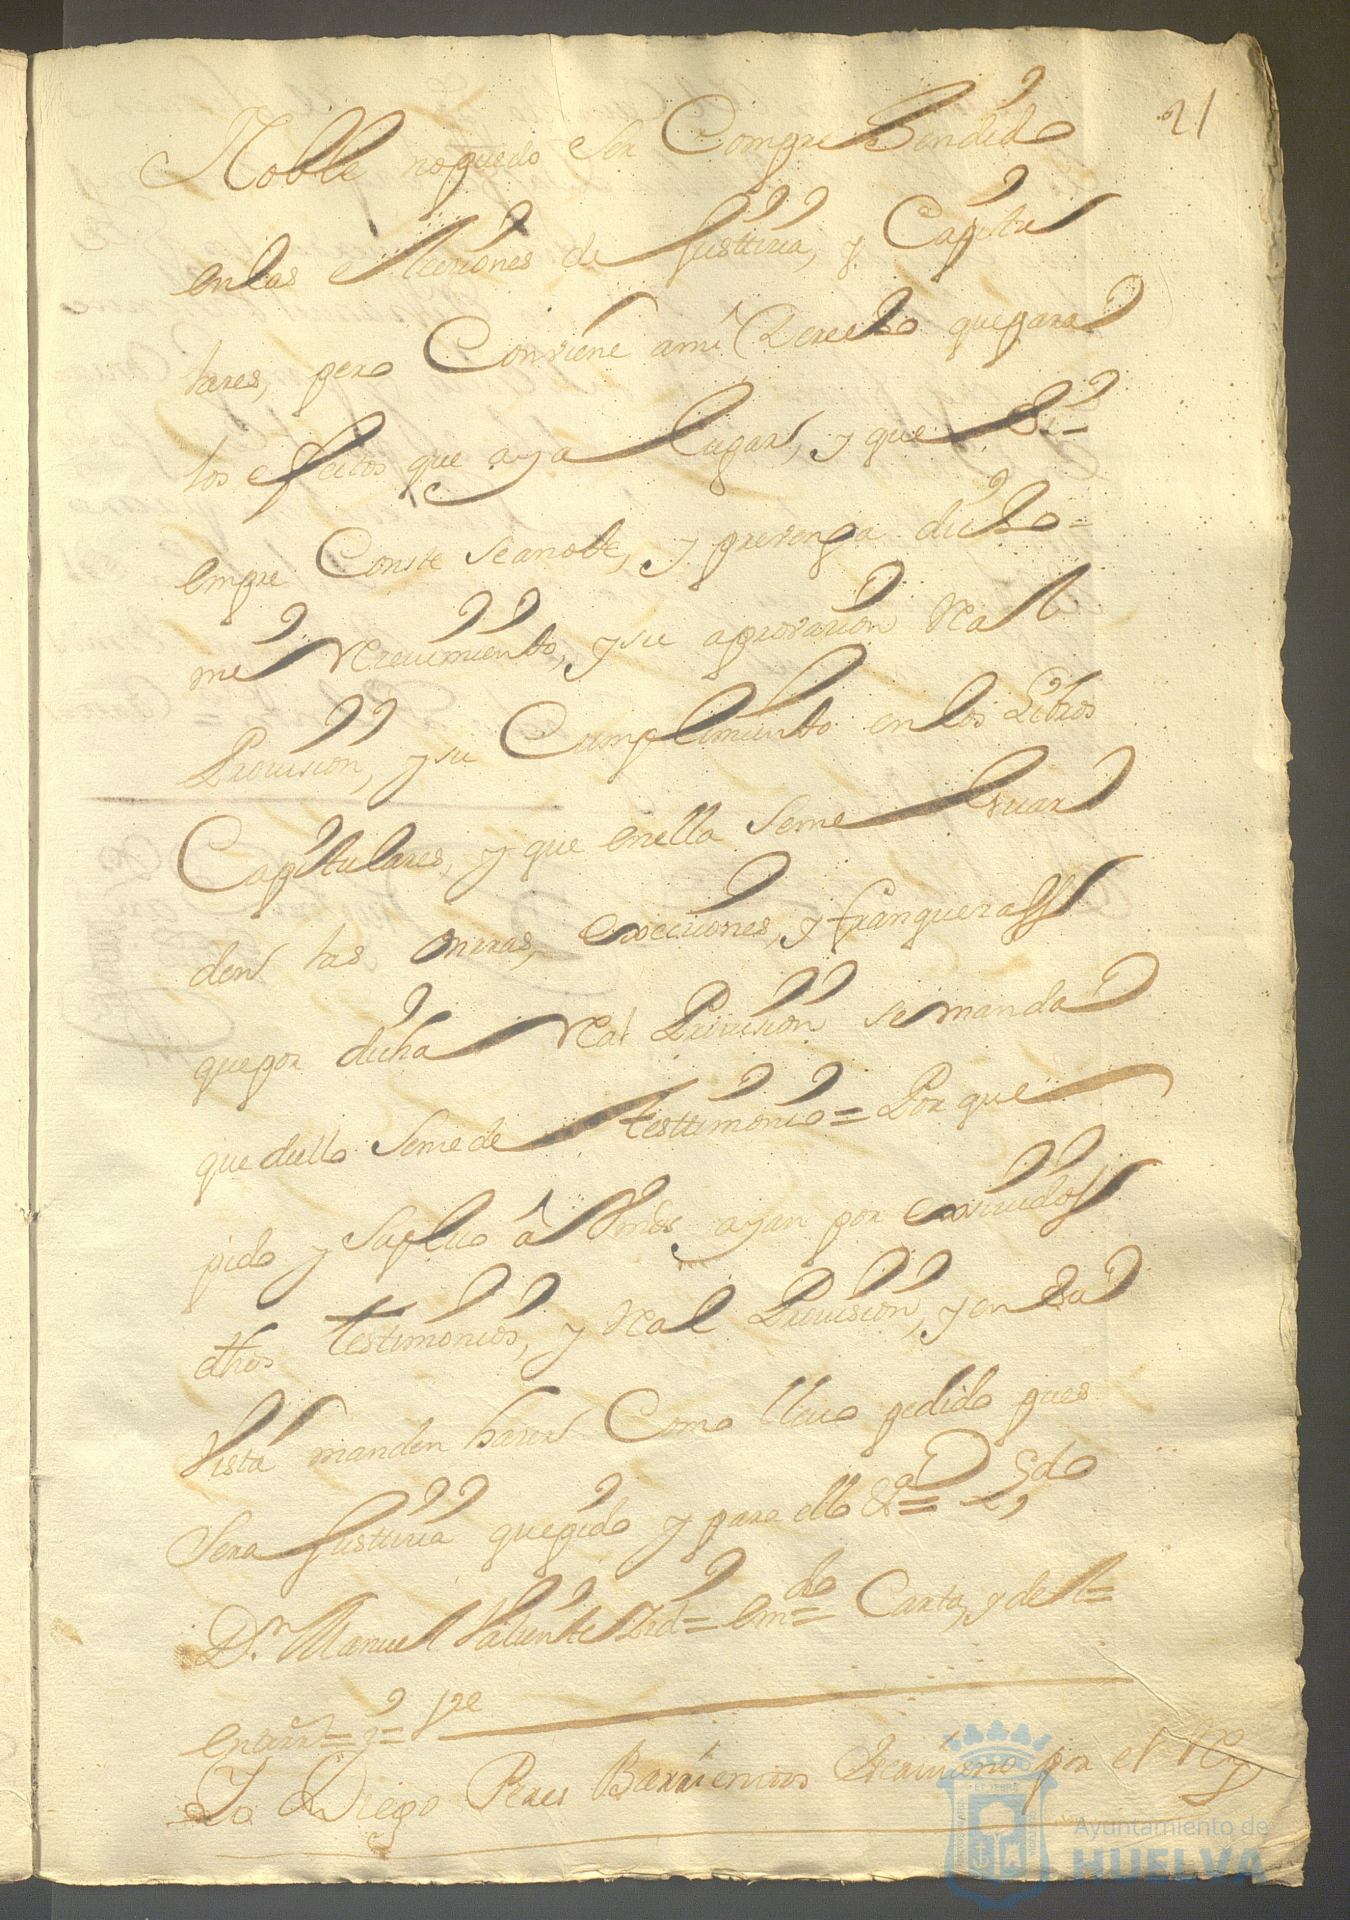 21
Noble nopuedo ser Comprehendido
enlas elecciones de Justticia, y Capitu
lares, pero Conviene ami Derecho quepara
los efectos que aya lugar, y que Si=
empre Conste Seanote, y prevenga dicho=
mi Recivimiento, y su aprovacion Real
Provision, y su Cumplimiento en los Libros
Capitulares, y que enella Seme Guar
den las onrras, Exocciones, y franquezas
quepor dicha Real Provision se manda
que dello Seme de Testtimonio= Por que
pido y Suplico â Vmds ayan por exsividos
dhos Testimonios, y Real Provision, y en su
Vista manden hacer Como llevo pedido pues
Sera Justticia quepido y para ello &ª=
Dn. Manuel Valiente Lzdo= Emdo= Carta, y del=
enterar= y= Vze
Yo Diego Perez Barrientos Escrivano por el Rey
Ayuntamiento de
HUELVA